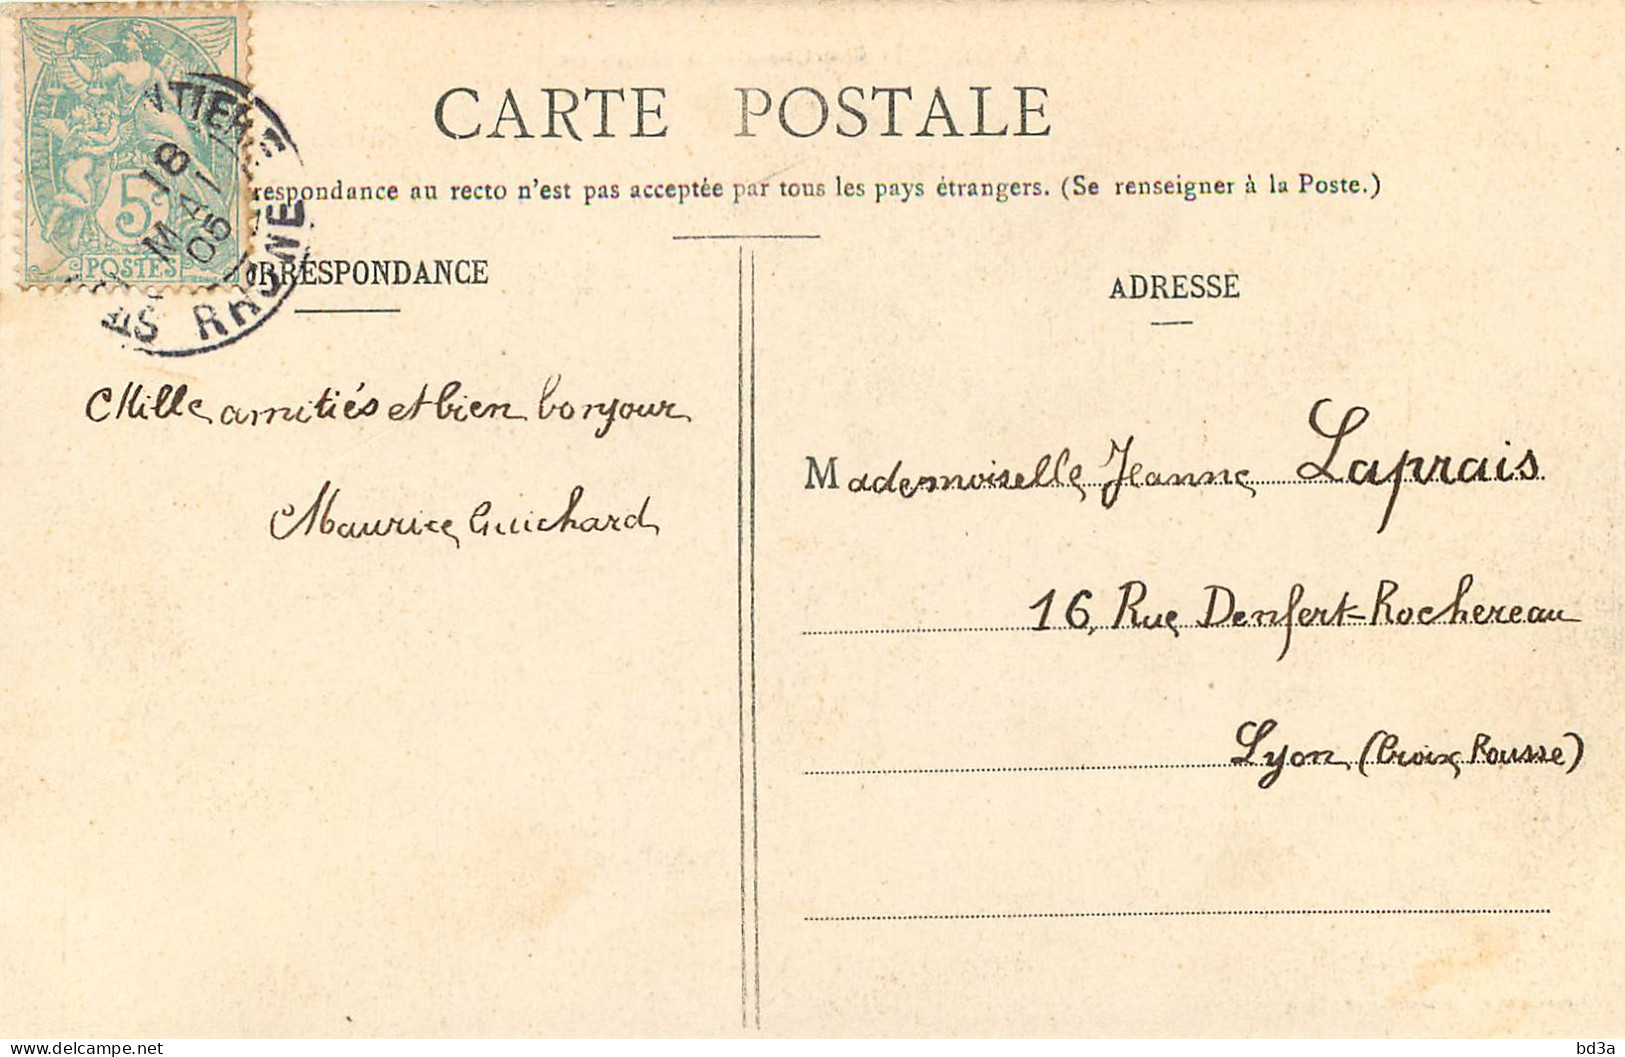 CARTE POSTALE
respondance au recto n'est pas acceptée par tous les pays étrangers. (Se renseigner à la Poste.)
5c
POSTES
18
MAI
05
RHONE
RRESPONDANCE
ADRESSE
Mille amitiés et bien bonjour
Maurice Guichard
Mademoiselle Jeanne Laprais
16, Rue Denfert-Rochereau
Lyon (Croix Rousse)
bd3a